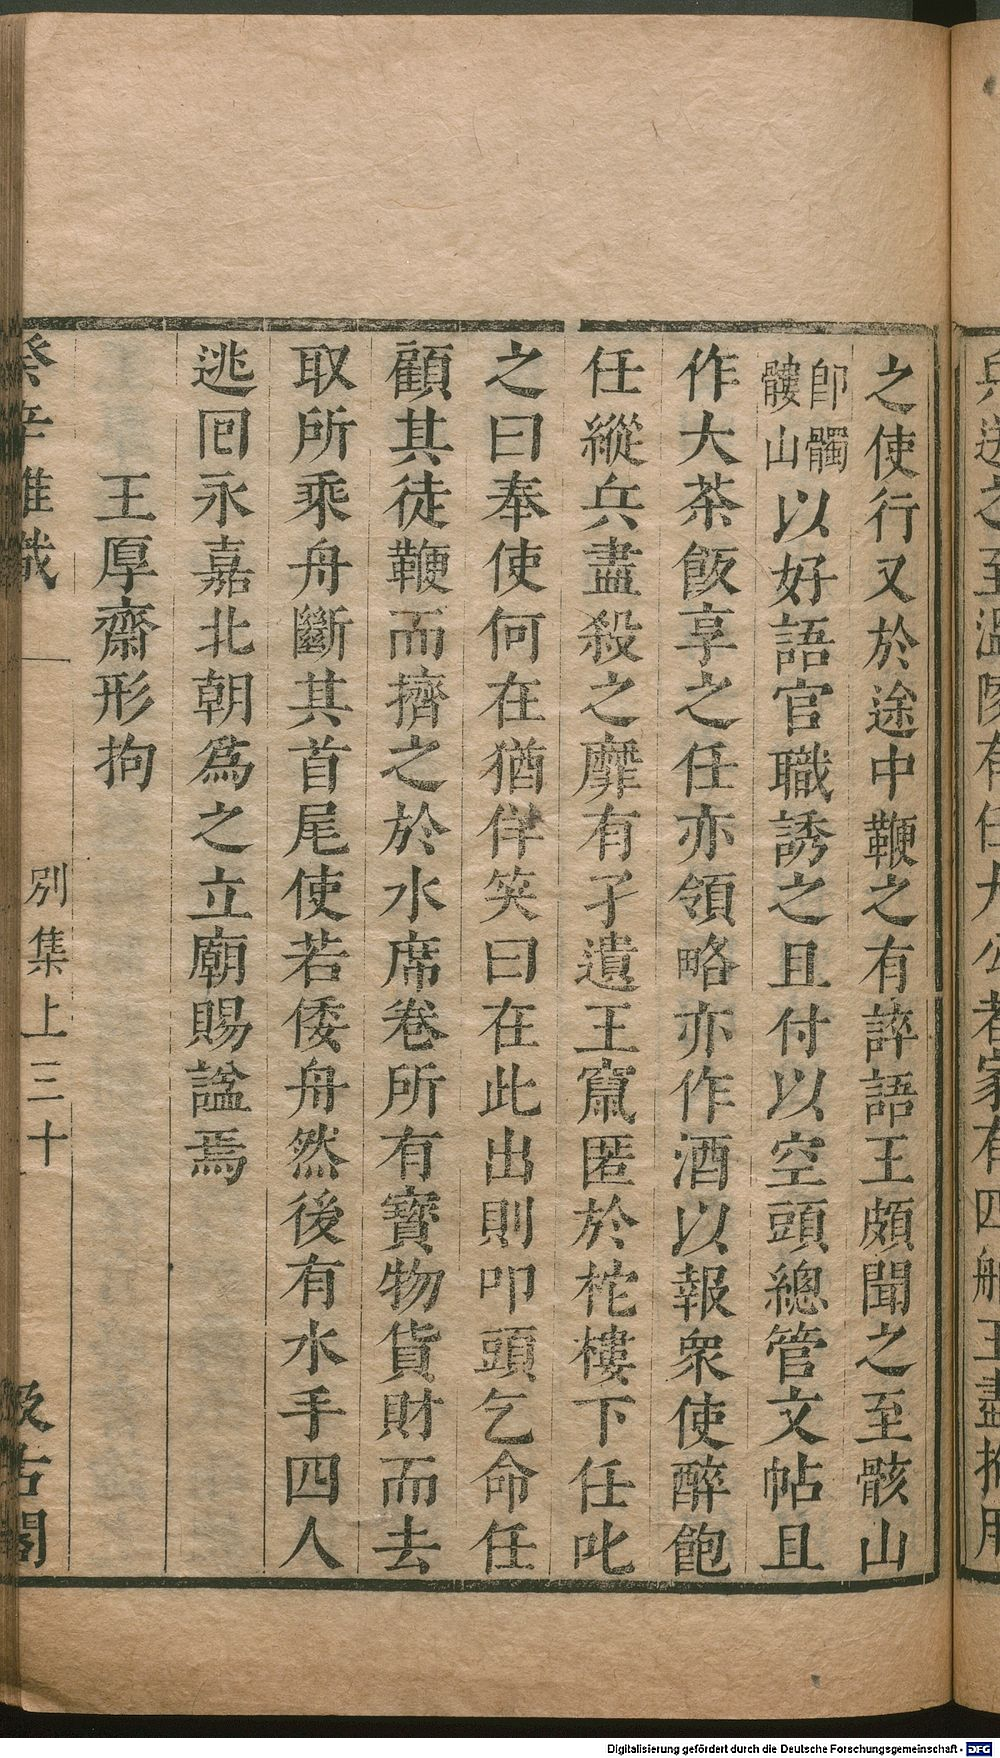 兵送之至溫陵有任大公者家有四船王盡拘用
之使行又於途中鞭之有誶語王頗聞之至骸山
卽髑
髏山
以好語官職誘之且付以空頭總管文帖且
作大茶飯享之任亦領略亦作酒以報衆使醉飽
任縱兵盡殺之靡有孑遺王竄匿於柁樓下任叱
之曰奉使何在猶佯笑曰在此出則叩頭乞命任
顧其徒鞭而擠之於水席卷所有寳物貨財而去
取所乘舟斷其首尾使若倭舟然後有水手四人
逃囘永嘉北朝爲之立廟賜諡焉
王厚齋形拘
癸辛雜識
別集上三十
汲古閣
Digitalisierung gefördert durch die Deutsche Forschungsgemeinschaft - DFG